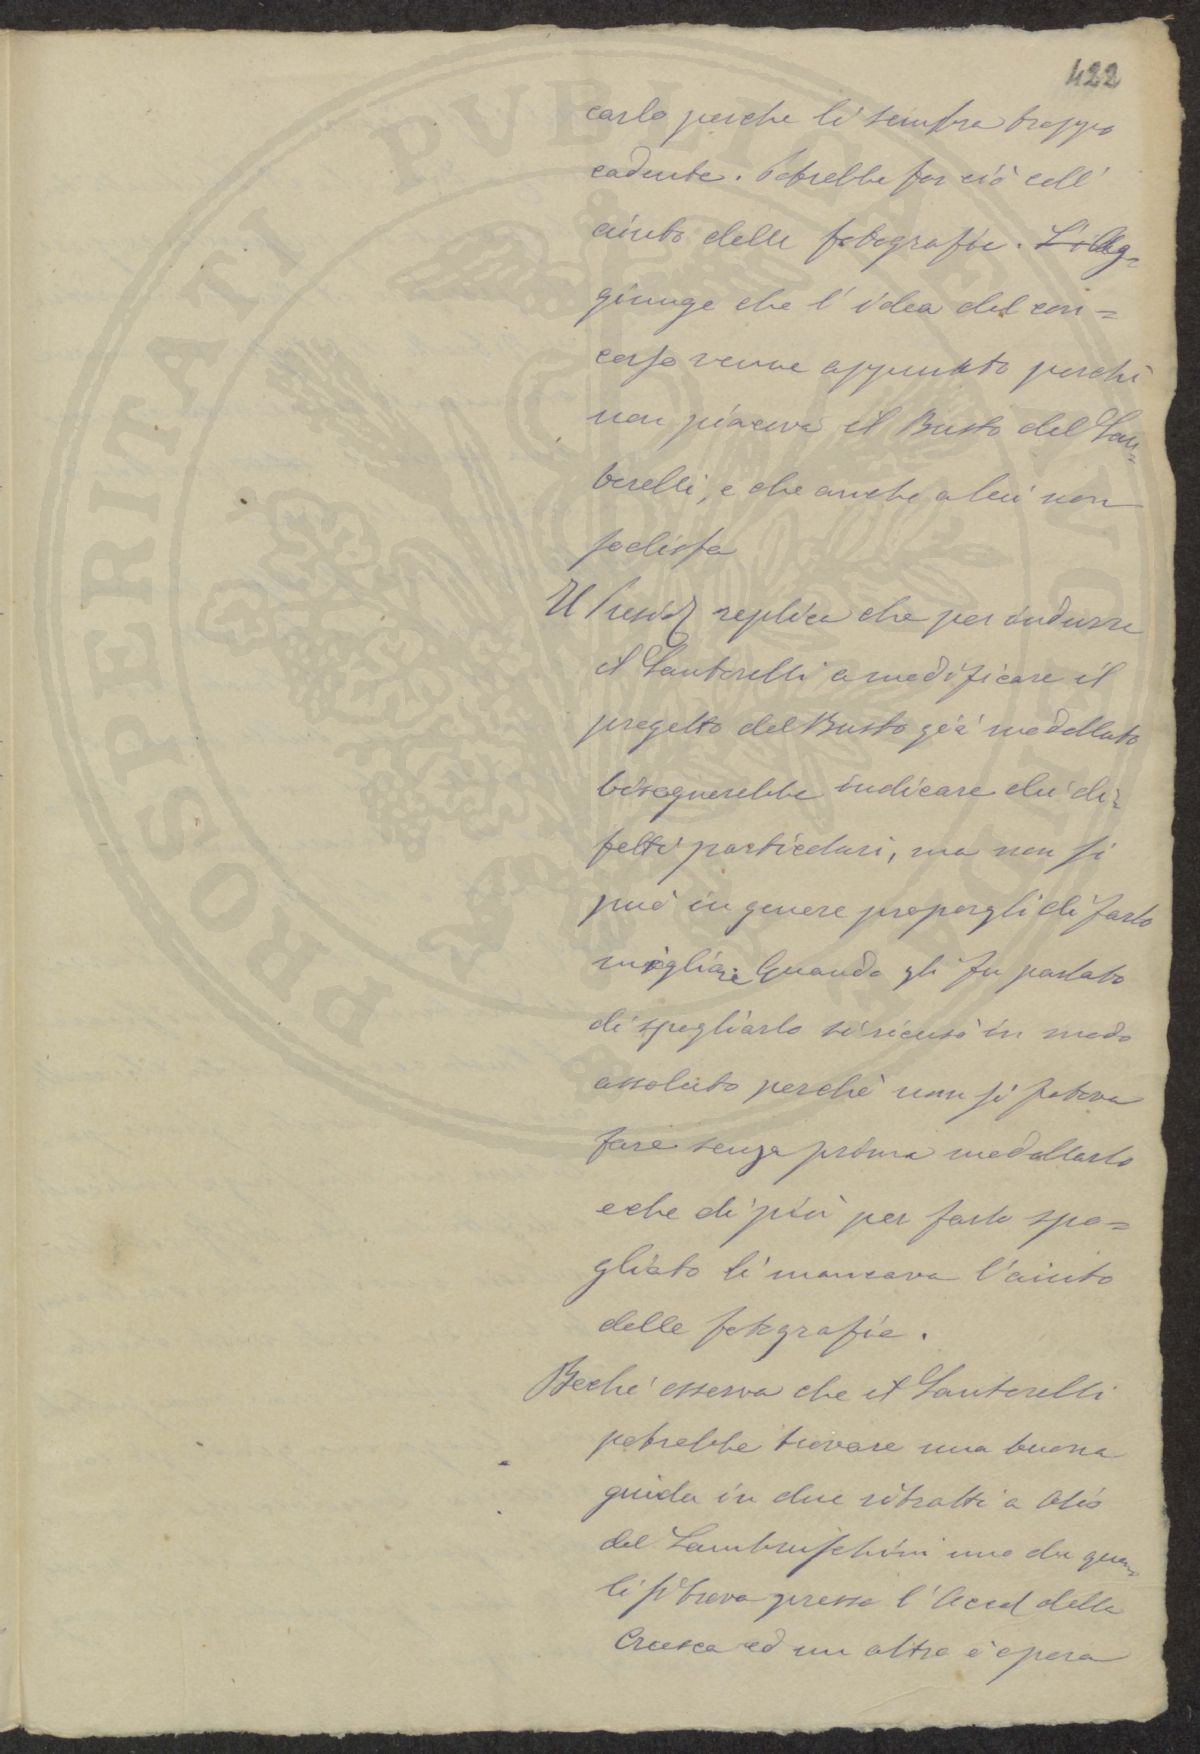 422
carlo perche li sembra troppo
cadente. Potrebbe far ciò coll'
aiuto delle fotografie. L'i Ag=
giunge che l'idea del con=
corso venne appunto perchè
non piaceva il Busto del San=
terelli, e che anche a lui non
sodisfa
Il Presid. replica che per indurre
il Santarelli a modificare il
progetto del Busto già modellato
bisognerebbe indicare dei di=
fetti particolari, ma non si
può in genere proporgli di farlo
migliore. Quando gli fu parlato
di spogliarlo si ricusò in modo
assoluto perchè non si poteva
fare senza prima modellarlo
e che di più per farlo spo=
gliato li mancava l'aiuto
delle fotografie.
Bechi osserva che il Santarelli
potrebbe trovare una buona
guida in due ritratti a olio
del Lambruschini uno dei qua=
li si trova presso l'Accad della
Crusca ed un altro è opera
PROSPERITATI PVBLICAE